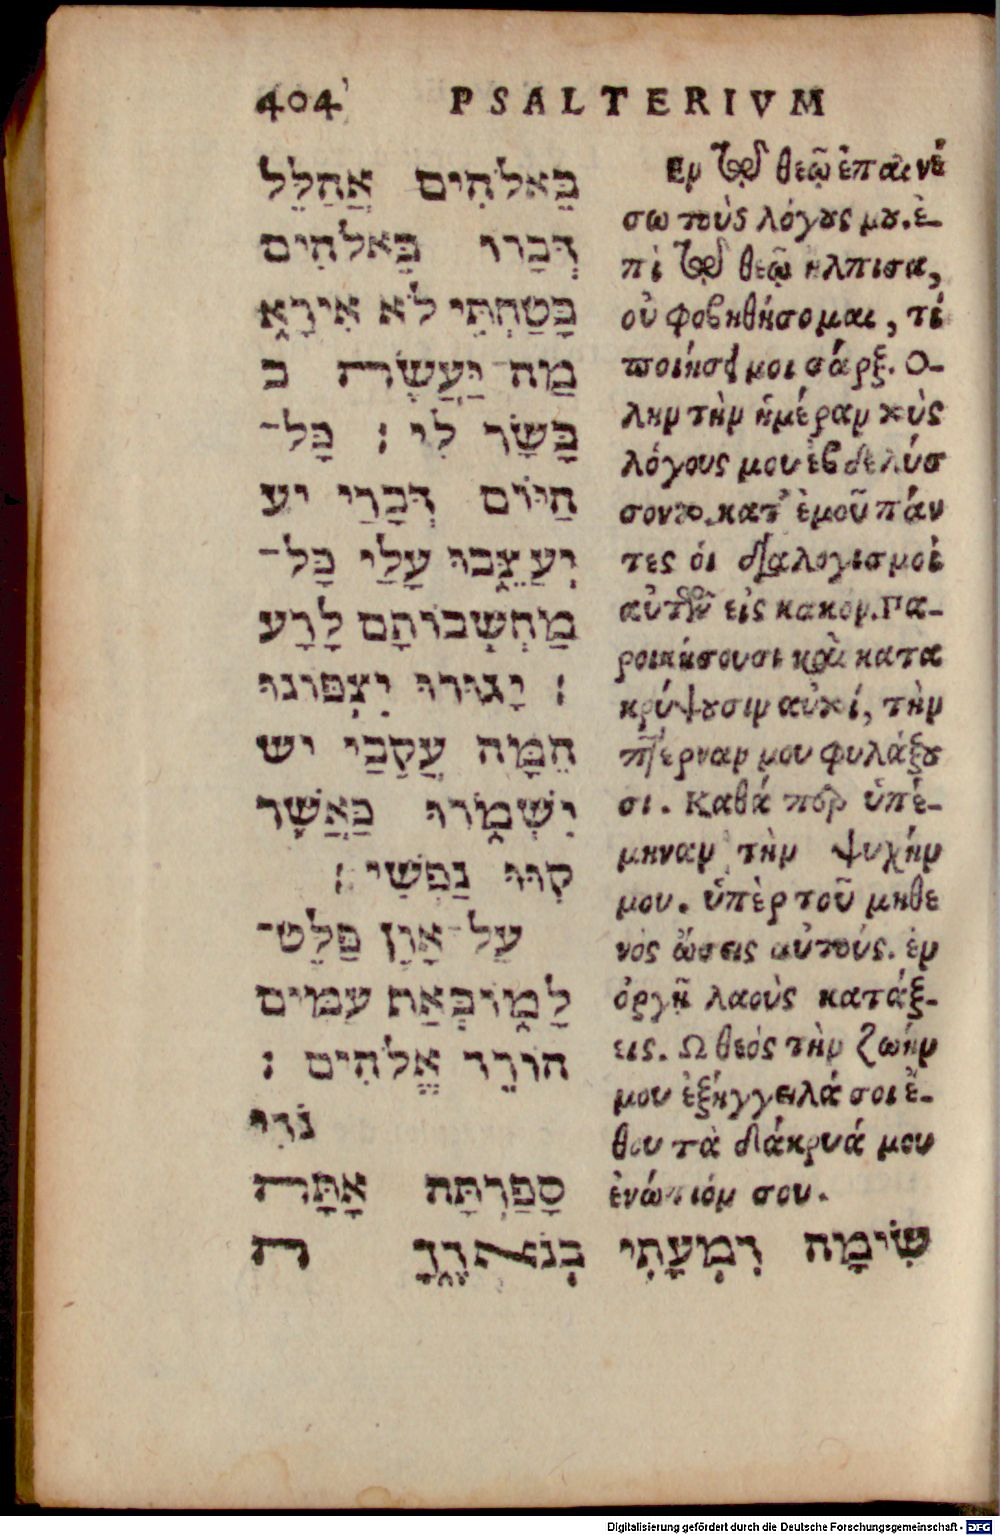 404 PSALTERIVM
בֵּאלֹהִים אֲהַלֵּל
דְּבָרוֹ בֵּאלֹהִים
בָּטַחְתִּי לֹא אִירָא
מַה יַּעֲשֶׂה כ
בָּשָׂר לִי : כָּל־
הַיּוֹם דְּבָרַי יע
יְעַצֵּבוּ עָלַי כָּל־
מַחְשְׁבוֹתָם לָרָע
: יָגוּרוּ יִצְפּוֹנוּ
הֵמָּה עֲקֵבַי יש
יִשְׁמֹרוּ כַּאֲשֶׁר
קִוּוּ נַפְשִׁי :
עַל־אָוֶן פַּלֶּט־
לָמוֹ בְּאַף עַמִּים
הוֹרֵד אֱלֹהִים :
נֹדִי
סָפַרְתָּה אָתָּה
שִׂימָה דִמְעָתִי בְנֹאדֶךָ ה
Εν τῷ θεῷ ἐπαινέ
σω τοὺς λόγους μου. ἐ-
πὶ τῷ θεῷ ἤλπισα,
οὐ φοβηθήσομαι, τί
ποιήσει μοι σάρξ. Ο-
λην τὴν ἡμέραν τοὺς
λόγους μου ἐβδελύσ
σοντο. κατ' ἐμοῦ πάν
τες οἱ διαλογισμοὶ
αὐτῶν εἰς κακόν. Πα-
ροικήσουσι καὶ κατα
κρύψουσιν αὐτοί, τὴν
πτέρναν μου φυλάξου
σι. Καθά περ ὑπέ-
μειναν τὴν ψυχήν
μου. ὑπὲρ τοῦ μηθε
νὸς ὤσεις αὐτούς. ἐν
ὀργῇ λαοὺς κατάξ-
εις. Ω θεός τὴν ζωήν
μου ἐξήγγειλά σοι ἔ-
θου τὰ δάκρυά μου
ἐνώπιόν σου.
Digitalisierung gefördert durch die Deutsche Forschungsgemeinschaft - DFG